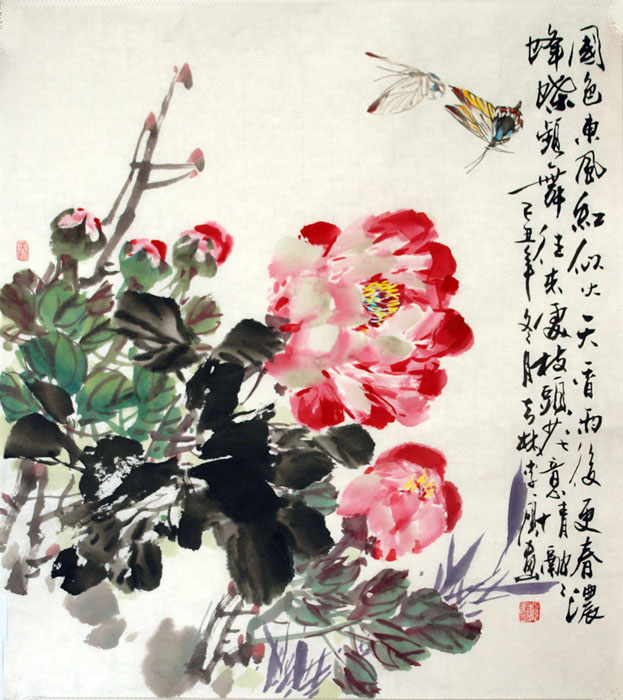 國色東風紅似火天香雨後更春濃
蜂蝶頻舞往來處枝頭意情融〻
己丑年冬月吉林李畫